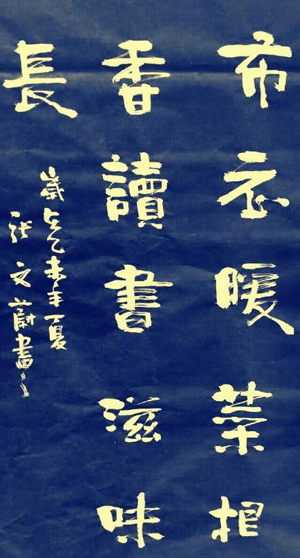 布衣暖菜根
香讀書滋味
長
歲在乙未年夏
張文蔚書